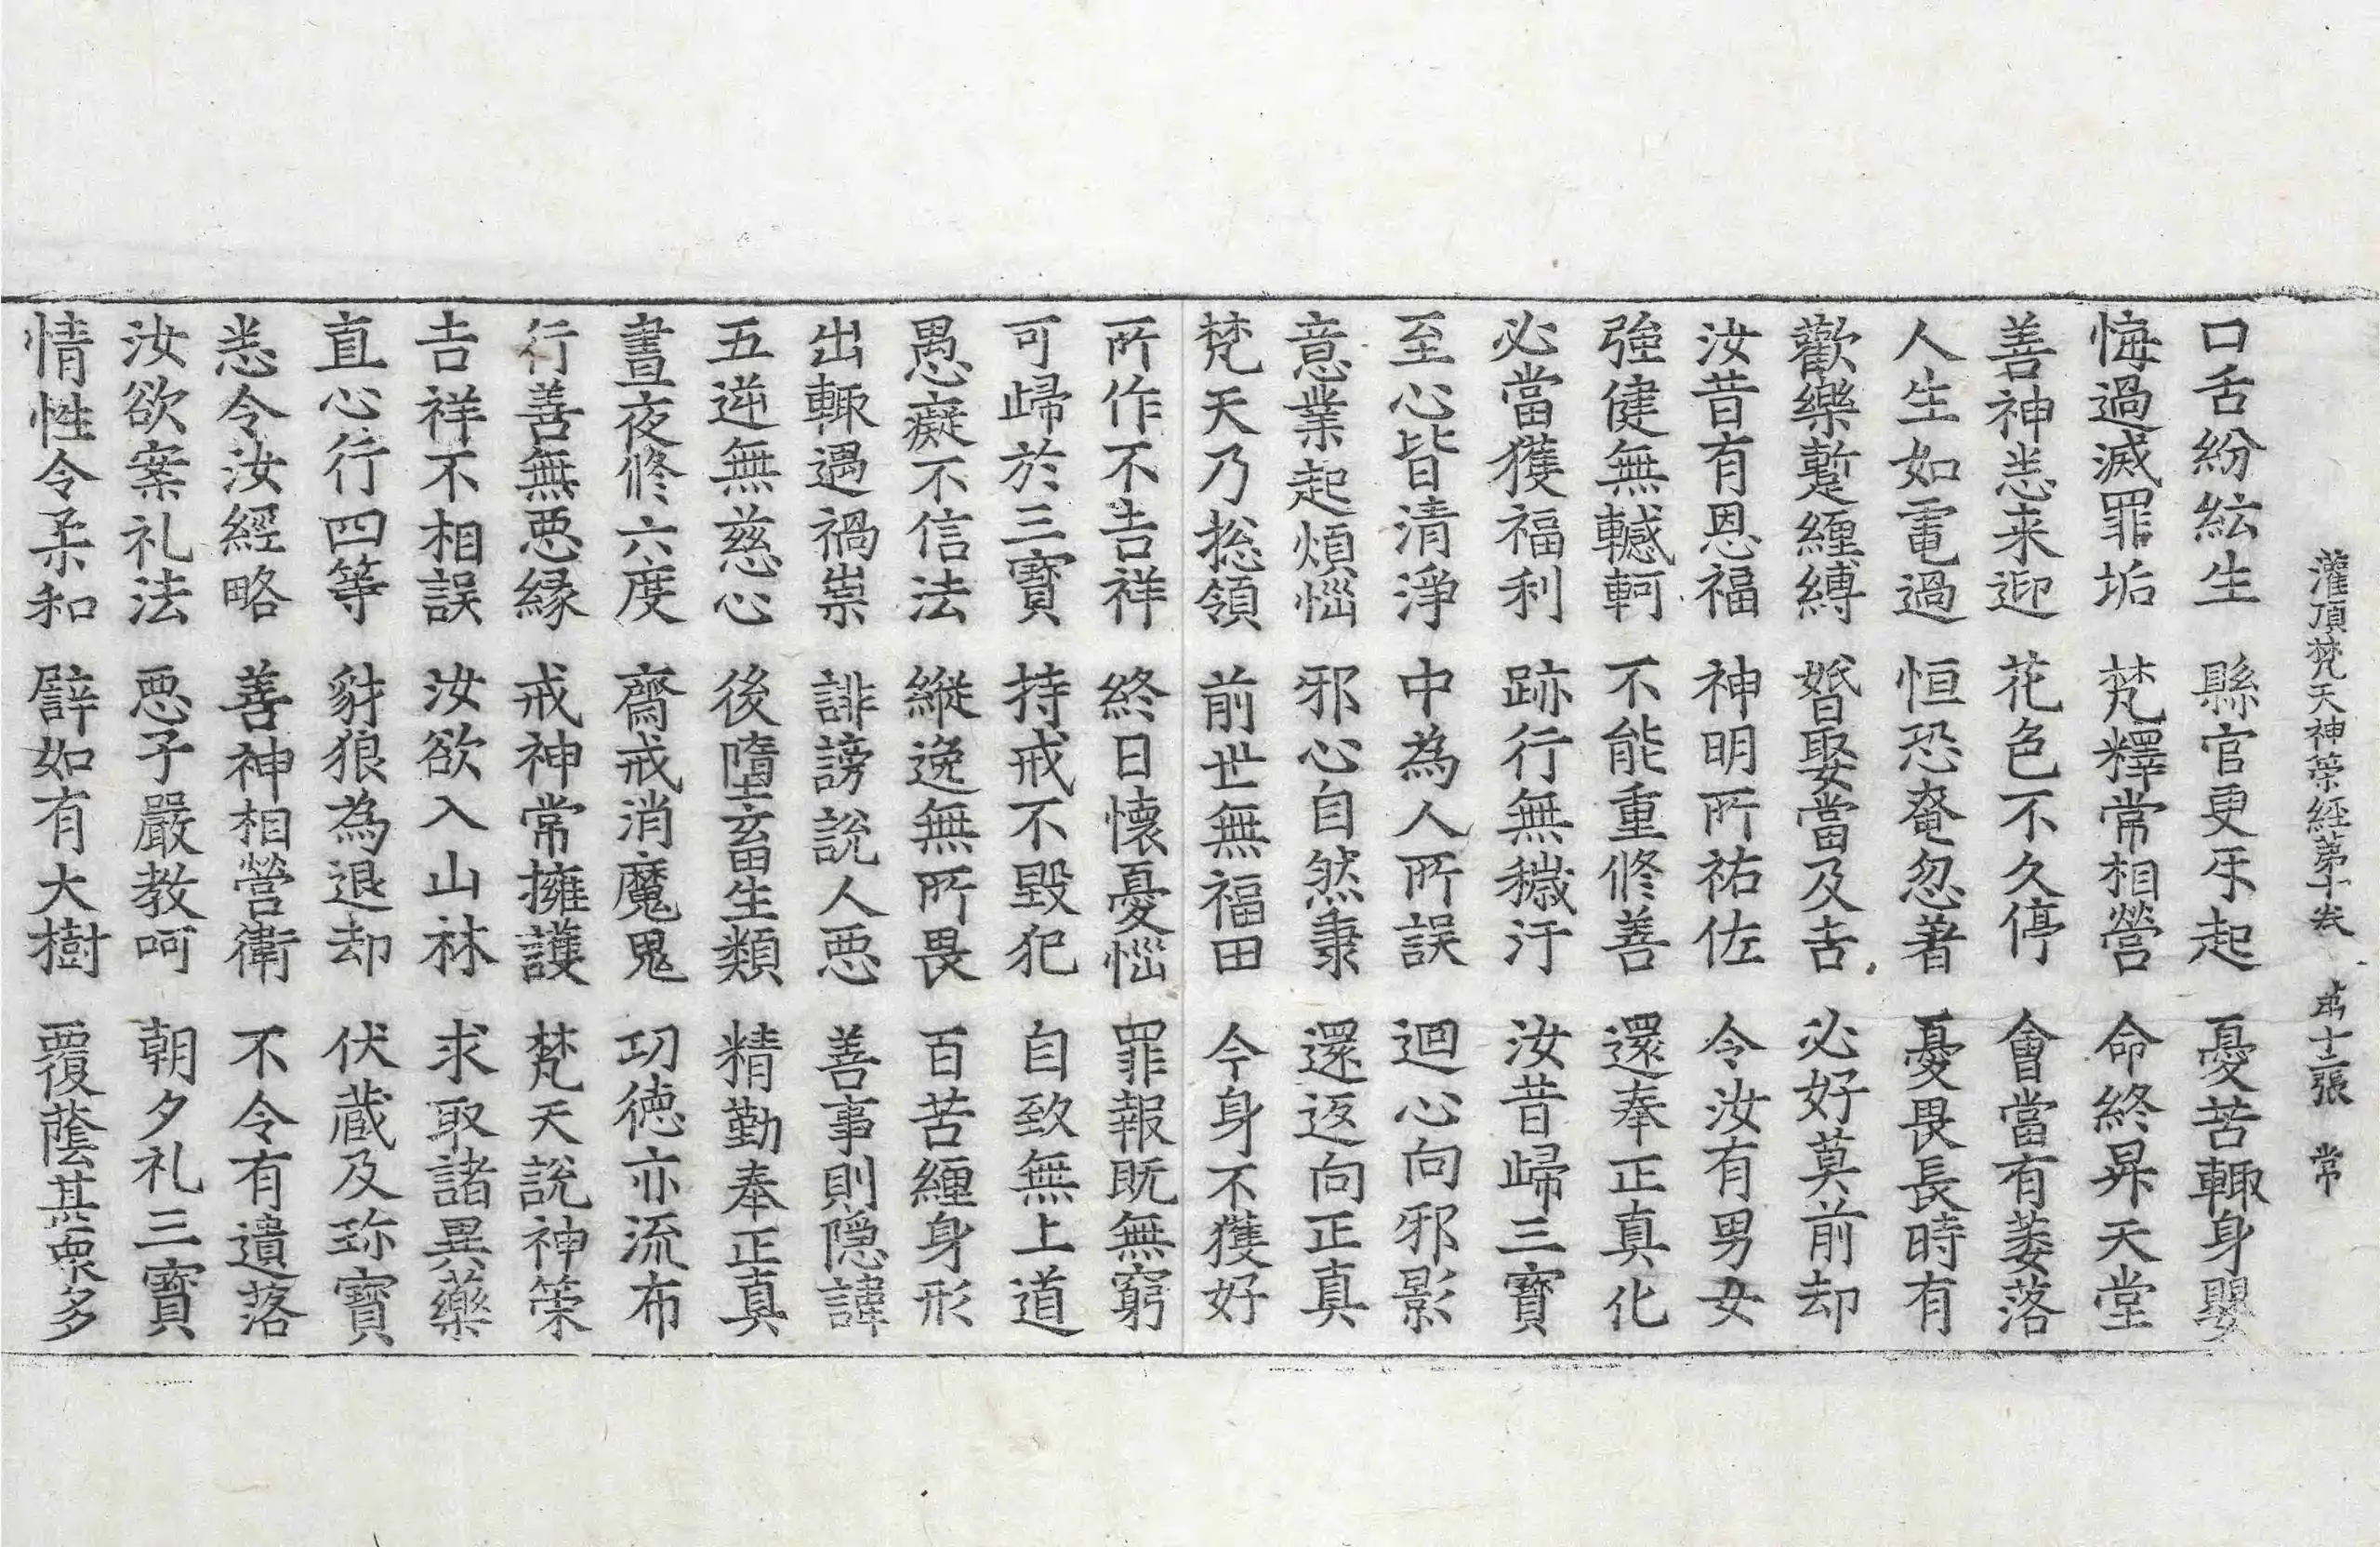 灌頂梵天神策経苐十卷　苐十二張　常
口舌紛紜生　縣官更牙起　憂苦輙身嬰
悔過滅罪垢　梵釋常相營　命終昇天堂
善神悉来迎　花色不久停　會當有萎落
人生如電過　恒恐奄忽著　憂畏長時有
歡樂蹔纏縛　婚娶當及吉　必好莫前却
汝昔有恩福　神明所祐佐　令汝有男女
強健無轗軻　不能重修善　還奉正真化
必當獲福利　跡行無穢汙　汝昔歸三寳
至心皆清淨　中為人所誤　迴心向邪影
意業起煩惱　邪心自然秉　還返向正真
梵天乃捴領　前世無福田　今身不獲好
所作不吉祥　終日懷憂惱　罪報既無窮
可歸於三寳　持戒不毀犯　自致無上道
愚癡不信法　縱逸無所畏　百苦纏身形
出輙遇禍祟　誹謗說人悪　善事則隱諱
五逆無慈心　後墮畜生類　精勤奉正真
晝夜修六度　齋戒消魔鬼　功德亦流布
行善無悪縁　戒神常擁護　梵天說神策
吉祥不相誤　汝欲入山林　求取諸異藥
直心行四等　豺狼為退却　伏藏及珎寳
悉令汝經略　善神相營衛　不令有遺落
汝欲案礼法　悪子嚴教呵　朝夕礼三寳
情性令柔和　辟如有大樹　覆蔭其眾多